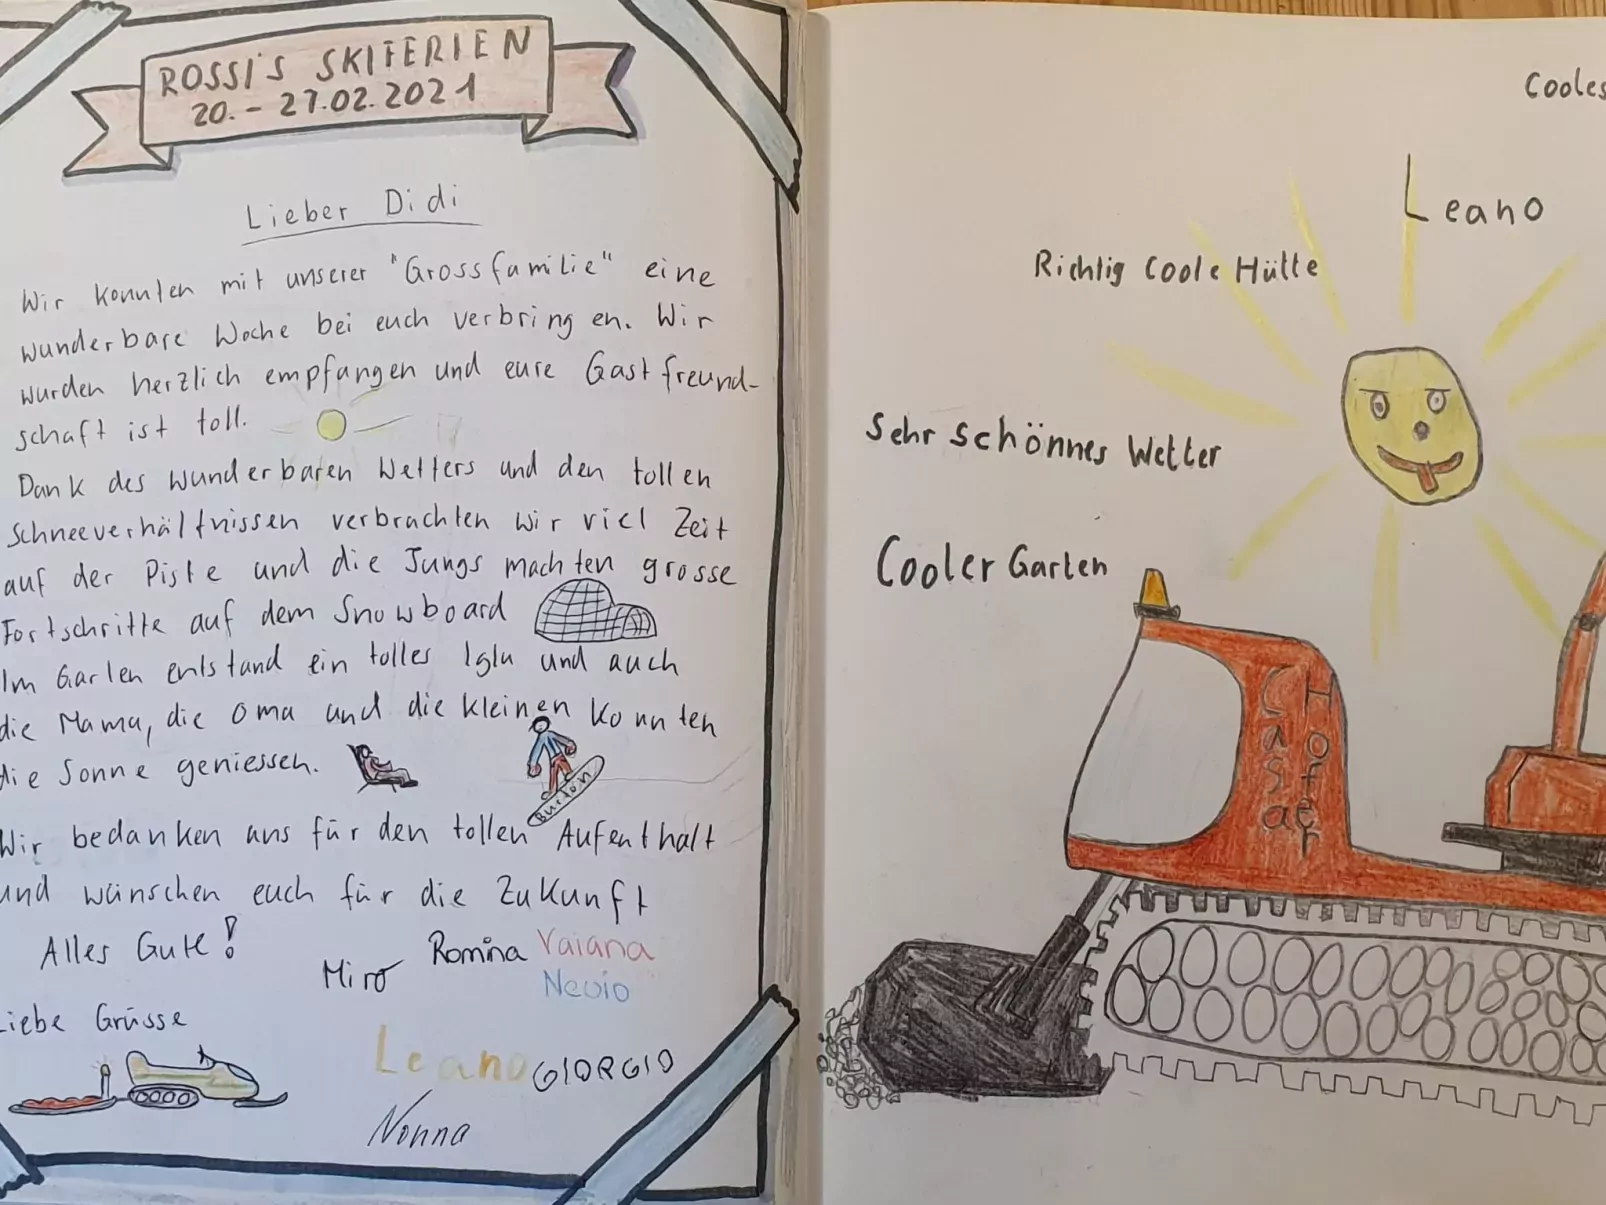 ROSSI'S SKIFERIEN
20. - 27.02.2021
Lieber Didi
Wir konnten mit unserer "Grossfamilie" eine
wunderbare Woche bei euch verbringen. Wir
wurden herzlich empfangen und eure Gastfreund-
schaft ist toll.
Dank des wunderbaren Wetters und den tollen
Schneeverhältnissen verbrachten wir viel Zeit
auf der Piste und die Jungs machten grosse
Fortschritte auf dem Snowboard
Im Garten entstand ein tolles Iglu und auch
die Mama, die Oma und die kleinen konnten
die Sonne geniessen.
Burton
Wir bedanken uns für den tollen Aufenthalt
und wünschen euch für die Zukunft
Alles Gute!
Romina Vaiana
Miro Nevio
Liebe Grüsse
Leano GIORGIO
Nonna
Cooles
Leano
Richtig Coole Hütte
Sehr schönnes Wetter
Cooler Garten
Cassa
Hofer